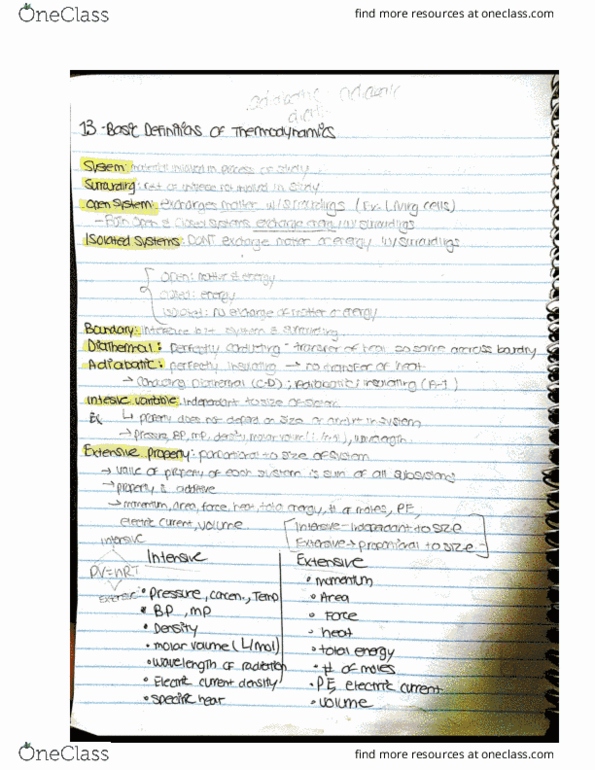 OneClass
find more resources at oneclass.com
13 - Basic Definitions of Thermodynamics
System: material involved in process of study
Surrounding: rest of universe not involved in study
Open System: exchanges matter w/ surroundings (Ex. Living cells)
- Both Open & Closed systems exchange energy w/ surroundings
Isolated Systems: DONT exchange matter or energy w/ surroundings
Open: matter & energy
closed: energy
isolated: no exchange of matter or energy
Boundary: interface btw system & surrounding
Diathermal: perfectly conducting - transfer of heat so same across boundry
Adiabatic: perfectly insulating → no transfer of heat
→ Conducting Diathermal (C-D); Adiabatic: insulating (A-I)
Intesive variable: independant to size of system
Ex ↳ property does not depend on size or amount in system
→ pressure, BP, mp, density, molar volume (L/mol), wavelength
Extensive property: porportional to size of system
→ value of property of each system is sum of all subsystems
→ property is additive
→ momentum, area, force, heat, total energy, # of moles, PE,
electric current, volume
[Intensive - independant to size
Extensive → proportional to size]
intensive
PV=nRT
Intensive
• Pressure, concen., Temp
• BP, mp
• Density
• molar volume (L/mol)
• wavelength of radiation
• Electric current density
• specific hear
Extensive
• momentum
• Area
• Force
• heat
• total energy
• # of moles
• PE, electric current
• volume
OneClass
find more resources at oneclass.com